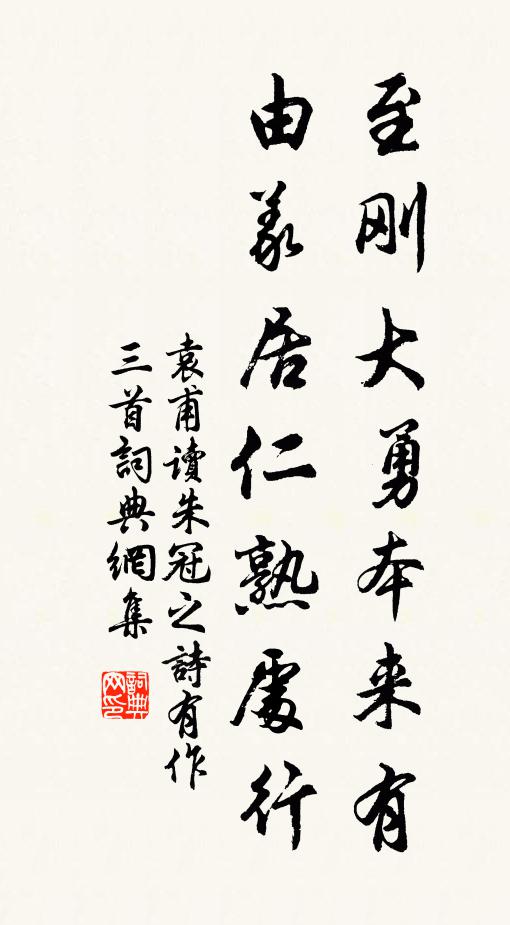 至刚大勇本来有
由义居仁熟处行
袁甫讀朱冠之詩有作
三首詞典網集
詞典网印